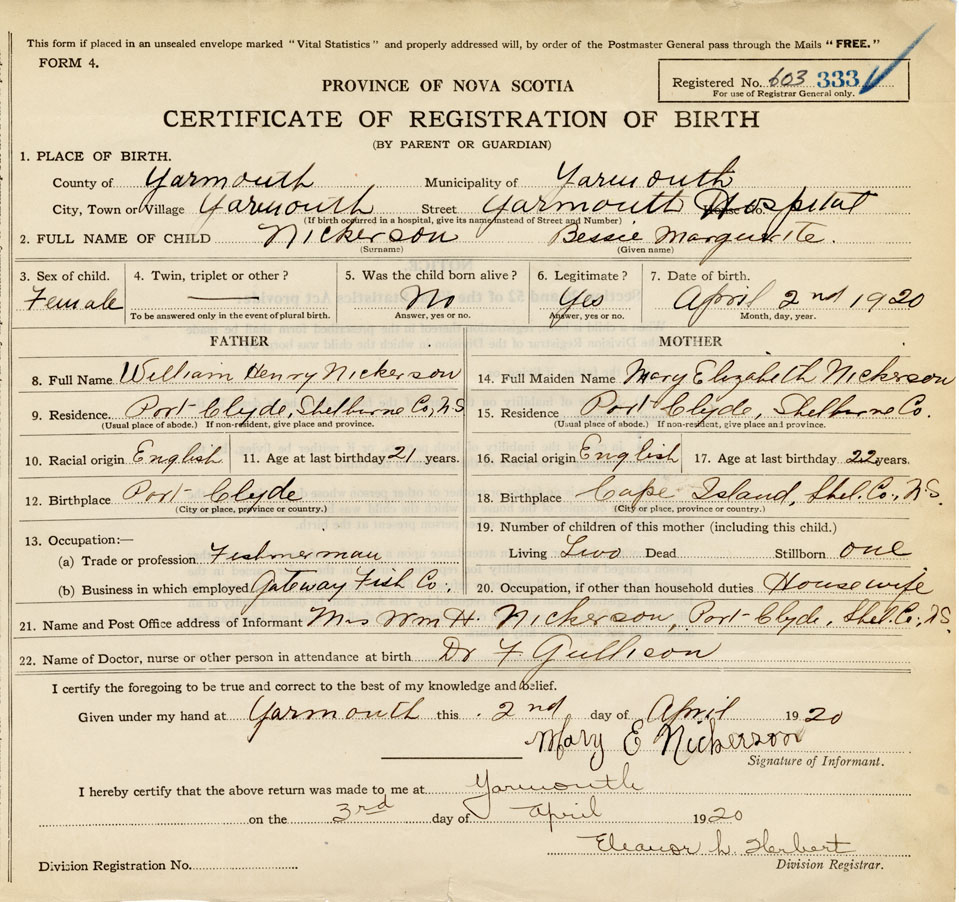 This form if placed in an unsealed envelope marked "Vital Statistics" and properly addressed will, by order of the Postmaster General pass through the Mails "FREE."
FORM 4.
Registered No. 603 333
For use of Registrar General only.
PROVINCE OF NOVA SCOTIA
CERTIFICATE OF REGISTRATION OF BIRTH
(BY PARENT OR GUARDIAN)
1. PLACE OF BIRTH.
County of Yarmouth Municipality of Yarmouth
City, Town or Village Yarmouth Street Yarmouth Hospital House No.
(If birth occurred in a hospital, give its name instead of Street and Number)
2. FULL NAME OF CHILD Nickerson Bessie Marguerite.
(Surname) (Given name)
3. Sex of child. 4. Twin, triplet or other? 5. Was the child born alive? 6. Legitimate? 7. Date of birth.
Female No Yes April 2nd 1920
To be answered only in the event of plural birth. Answer, yes or no. Answer, yes or no. Month, day, year.
FATHER MOTHER
8. Full Name William Henry Nickerson 14. Full Maiden Name Mary Elizabeth Nickerson
9. Residence. Port Clyde, Shelburne Co, N.S 15. Residence Port Clyde, Shelburne Co.
(Usual place of abode.) If non-resident, give place and province. (Usual place of abode.) If non-resident, give place and province.
10. Racial origin English 11. Age at last birthday 21 years. 16. Racial origin English 17. Age at last birthday 22 years.
12. Birthplace Port Clyde 18. Birthplace Cape Island, Shel. Co., N.S.
(City or place, province or country.) (City or place, province or country.)
13. Occupation:— 19. Number of children of this mother (including this child.)
(a) Trade or profession Fishmerman Living Two Dead Stillborn one
(b) Business in which employed Gateway Fish Co. 20. Occupation, if other than household duties Housewife
21. Name and Post Office address of Informant Mrs Wm H. Nickerson, Port Clyde, Shel. Co., N.S.
22. Name of Doctor, nurse or other person in attendance at birth Dr F Gullison
I certify the foregoing to be true and correct to the best of my knowledge and belief.
Given under my hand at Yarmouth this 2nd day of April 1920
Mary E Nickerson
Signature of Informant.
I hereby certify that the above return was made to me at Yarmouth
on the 3rd day of April 1920
Eleanor L. Herbert
Division Registration No. Division Registrar.